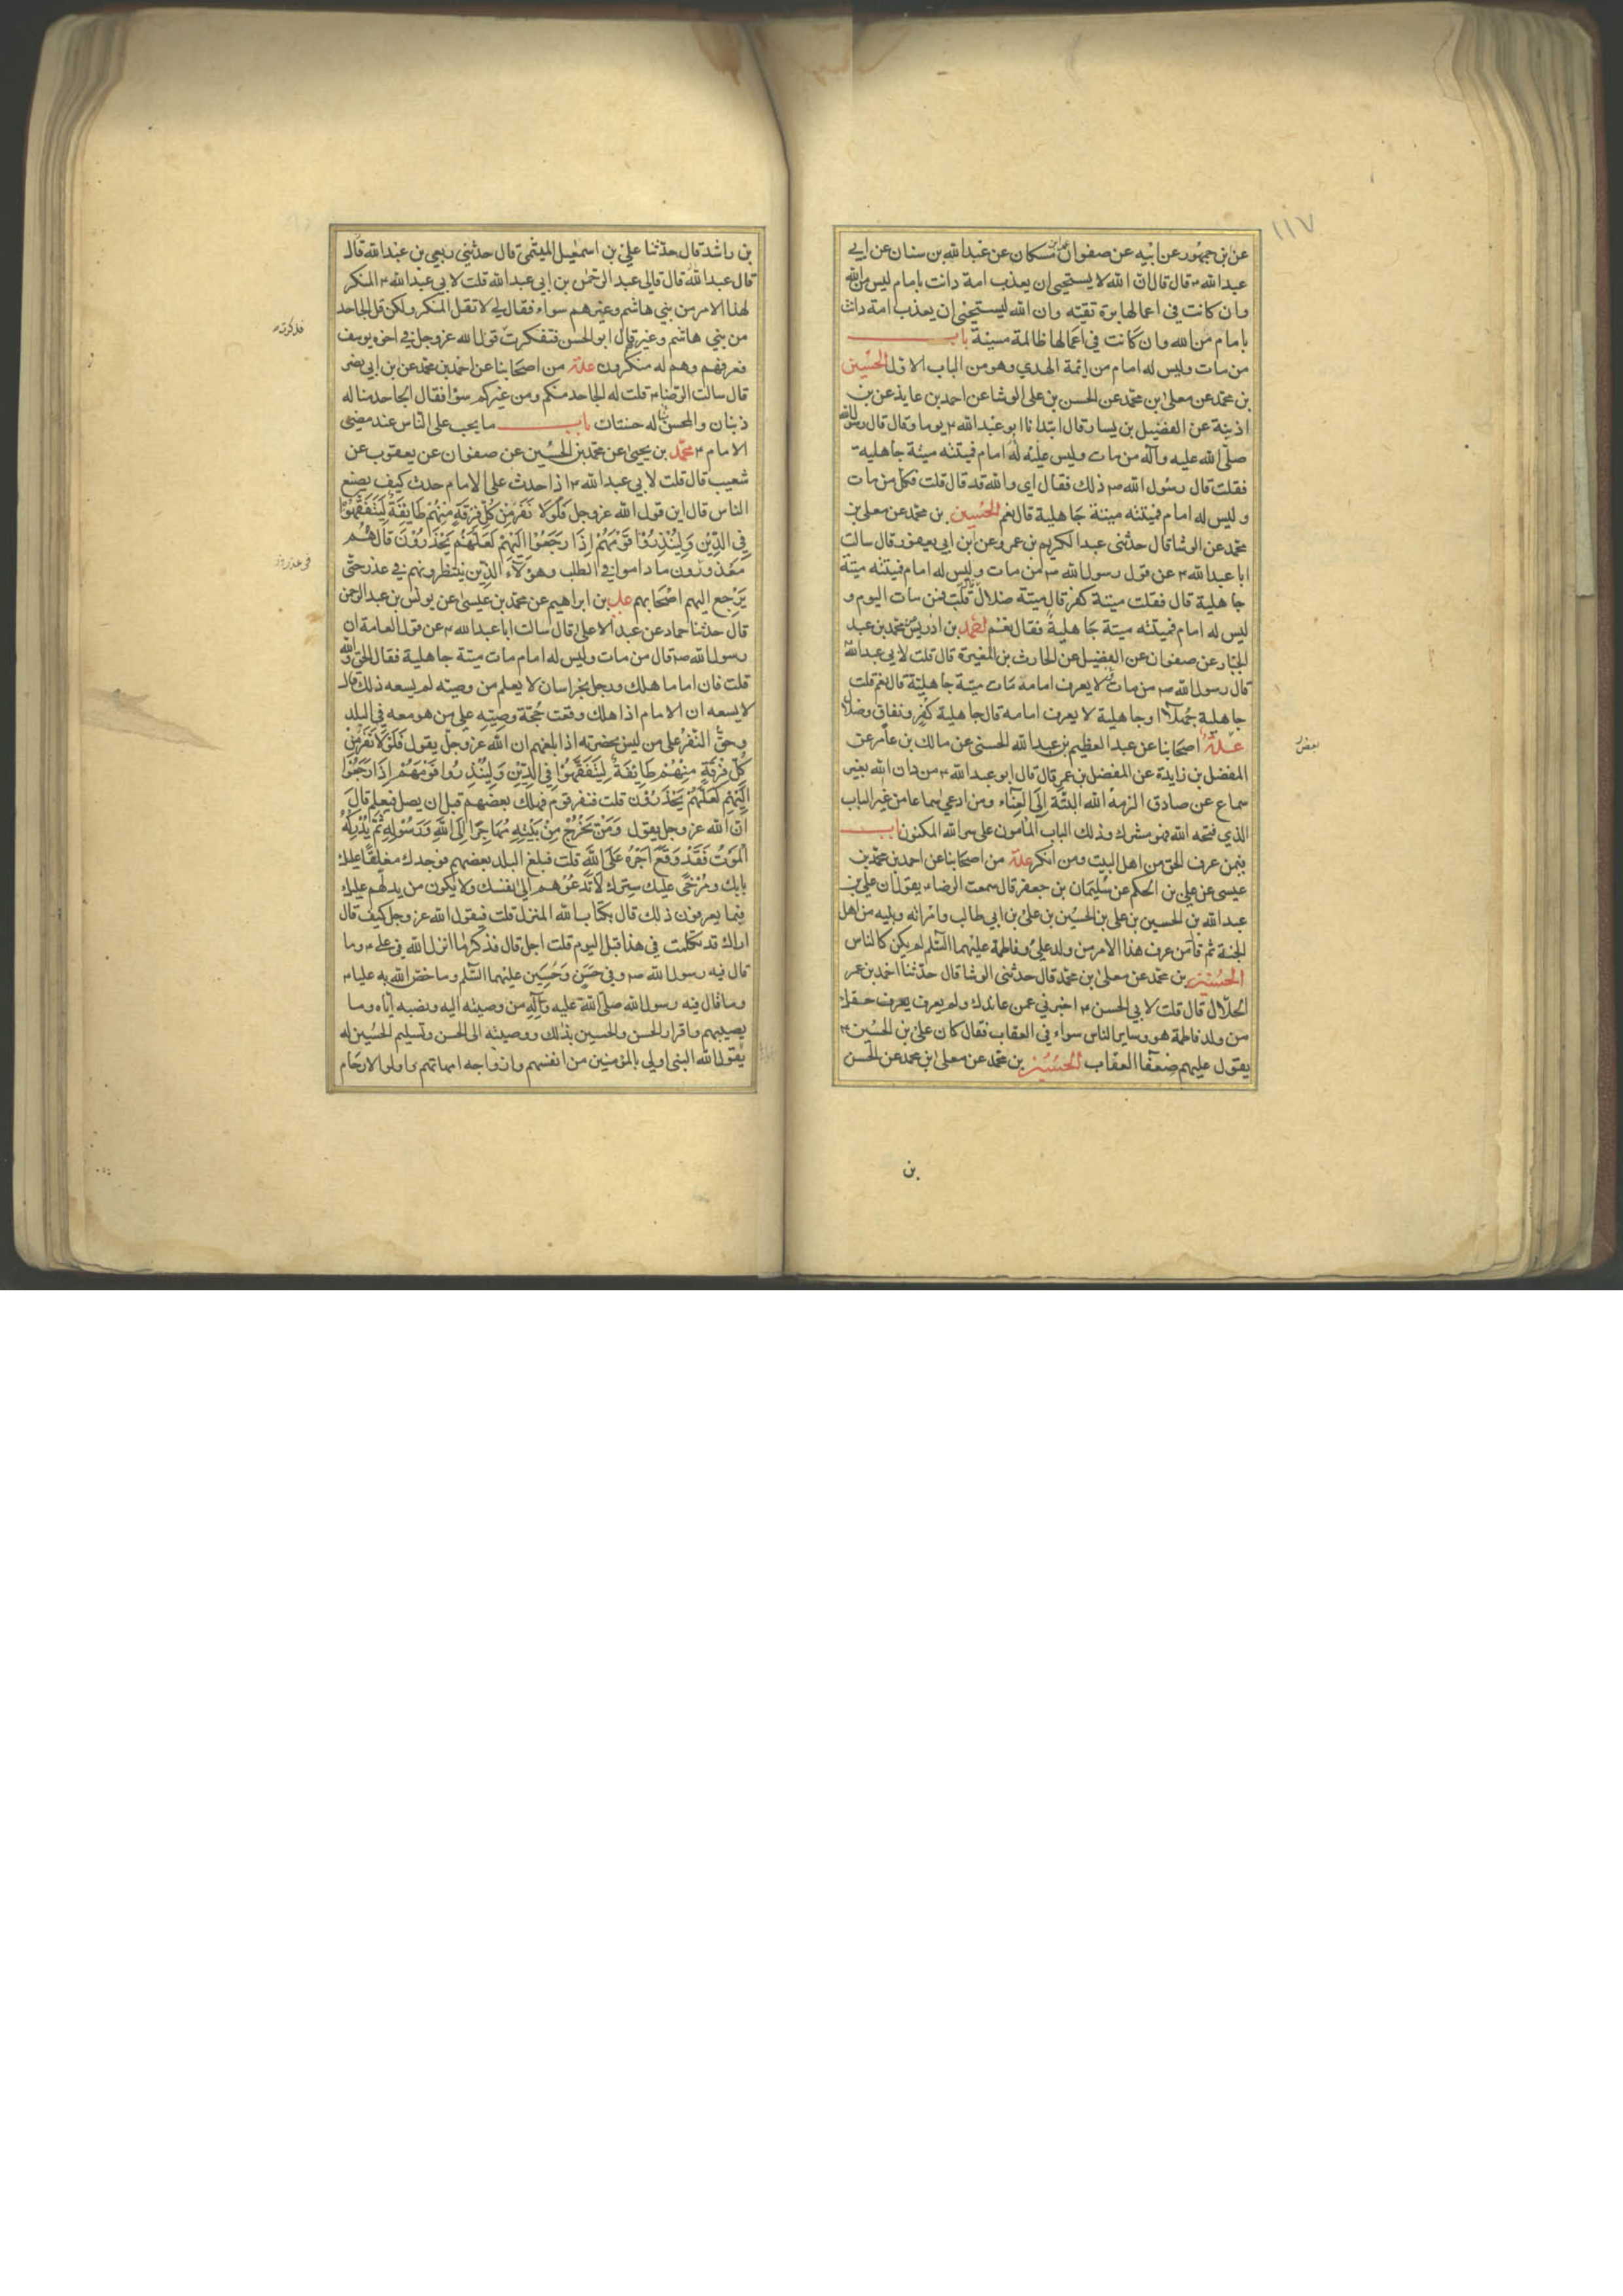 ١١٧
عن بن جمهور عن ابيه عن صفوان عن ابن مسكان عن عبد الله بن سنان عن ابي
عبد الله ء قال قال ان الله لا يستحيي ان يعذب امة دانت بامام ليس من الله
وان كانت في اعمالها برة تقية وان الله ليستحيي ان يعذب امة دانت
بامام من الله وان كانت في اعمالها ظالمة مسيئة باب
من مات وليس له امام من ائمة الهدي وهو من الباب الاول الحسين
بن محمد عن معلى بن محمد عن الحسن بن علي الوشا عن احمد بن عايذ عن بن
اذينة عن الفضيل بن يسار قال ابتدانا ابو عبد الله ء يوما وقال قال رسول الله
صلى الله عليه وآله من مات وليس عليه له امام فميتته ميتة جاهلية
فقلت قال رسول الله ص ذلك فقال اي والله قد قال قلت فكل من مات
وليس له امام فميتته ميتة جاهلية قال نعم الحسين بن محمد عن معلى بن
محمد عن الوشا قال حدثنى عبد الكريم بن عمرو عن ابن ابي يعفور قال سالت
ابا عبد الله ء عن قول رسول الله ص من مات وليس له امام فميتته ميتة
جاهلية قال فقلت ميتة كفر قال ميتة ضلال قلت فمن مات اليوم و
ليس له امام فميتته ميتة جاهلية فقال نعم احمد بن ادريس محمد بن عبد
الجبار عن صفوان عن الفضيل عن الحارث بن المغيرة قال قلت لابي عبد الله
قال رسول الله ص من مات لا يعرف امامه مات ميتة جاهلية قال نعم قلت
جاهلية جهلا او جاهلية لا يعرف امامه قال جاهلية كفر ونفاق وضلال
بعض
عدة اصحابنا عن عبد العظيم بن عبد الله الحسنى عن مالك بن عامر عن
المفضل بن زايدة عن المفضل بن عمر قال قال ابو عبد الله ء من دان الله بغير
سماع عن صادق الزمه الله البتة الى العناء ومن ادعى سماعا من غير الباب
الذي فتحه الله فهو مشرك وذلك الباب المأمون على سر الله المكنون باب
فيمن عرف الحق من اهل البيت ومن انكر عدة من اصحابنا عن احمد بن محمد بن
عيسى عن علي بن الحكم عن سليمان بن جعفر قال سمعت الرضاء يقول ان علي بن
عبد الله بن الحسين بن علي بن الحسين بن علي بن ابي طالب وامرأته وبنيه من اهل
الجنة ثم قال من عرف هذا الامر من ولد علي وفاطمة عليهما السلم لم يكن كالناس
الحسين بن محمد عن معلى بن محمد قال حدثنى الوشا قال حدثنا احمد بن عمر
الحلال قال قلت لابي الحسن ء اخبرني عمن عاندك ولم يعرف حقك
من ولد فاطمة هو وساير الناس سواء في العقاب فقال كان علي بن الحسين ء
يقول عليهم ضعفا العقاب الحسين بن محمد عن معلى بن محمد عن الحسن
بن
بن راشد قال حدثنا علي بن اسمعيل الميثمى قال حدثني ربعي بن عبد الله قال
قال عبد الله قال قال لي عبد الرحمن بن ابي عبد الله قلت لابي عبد الله ء المنكر
لهذا الامر من بني هاشم وغيرهم سواء فقال لي لا تقل المنكر ولكن قل الجاحد
من بني هاشم وغيرهم قال ابو الحسن فتفكرت قول الله عز وجل في اخوة يوسف
فذكرت
فعرفهم وهم له منكرون عدة من اصحابنا عن احمد بن محمد عن بن ابي نصر
قال سالت الرضاء قلت له الجاحد منكم ومن غيركم سوا فقال الجاحد منا له
ذنبان والمحسن له حسنتان باب ما يجب على الناس عند مضي
الامام ء محمد بن يحيى عن محمد بن الحسين عن صفوان عن يعقوب عن
شعيب قال قلت لابي عبد الله ء اذا حدث على الامام حدث كيف يصنع
الناس قال اين قول الله عز وجل فَلَوْلا نَفَرَ مِنْ كُلِّ فِرْقَةٍ مِنْهُمْ طَايِفَةٌ لِيَتَفَقَّهُوا
فِي الدِّينِ وَلِيُنْذِرُوا قَوْمَهُمْ اِذَا رَجَعُوا اِلَيْهِمْ لَعَلَّهُمْ يَحْذَرُوْنَ قال هم
معذورون ما داموا في الطلب وهؤلاء الذين ينتظرونهم في عذر حتى
يرجع اليهم اصحابهم علي بن ابراهيم عن محمد بن عيسى عن يونس بن عبد الرحمن
قال حدثنا حماد عن عبد الاعلى قال سالت ابا عبد الله ء عن قول العامة ان
رسول الله ص قال من مات وليس له امام مات ميتة جاهلية فقال الحق والله
قلت فان اماما هلك ورجل بخراسان لا يعلم من وصيه لم يسعه ذلك قال
لا يسعه ان الامام اذا هلك وقعت حجة وصيه على من هو معه في البلد
وحق النفر على من ليس بحضرته اذا بلغهم ان الله عز وجل يقول فَلَوْلَا نَفَرَ مِنْ
كُلِّ فِرْقَةٍ مِنْهُمْ طَائِفَةٌ لِيَتَفَقَّهُوا فِي الدِّينِ وَلِيُنْذِرُوا قَوْمَهُمْ اِذَا رَجَعُوا
اِلَيْهِمْ لَعَلَّهُمْ يَحْذَرُوْنَ قلت فنفر قوم فهلك بعضهم قبل ان يصل فيعلم قال
ان الله عز وجل يقول وَمَنْ يَخْرُجْ مِنْ بَيْتِهِ مُهَاجِرًا اِلَى اللهِ وَرَسُوْلِهِ ثُمَّ يُدْرِكْهُ
الْمَوْتُ فَقَدْ وَقَعَ اَجْرُهُ عَلَى اللهِ قلت فبلغ البلد بعضهم فوجدك مغلقا عليك
بابك ومرخى عليك سترك لا تدعوهم الى نفسك ولا يكون من يدلهم عليك
فبما يعرفون ذلك قال بكتاب الله المنزل قلت فيقول الله عز وجل كيف قال
اراك قد تكلمت في هذا قبل اليوم قلت اجل قال فذكر ما انزل الله في علي ء وما
قال فيه رسول الله ص وفي حسن وحسين عليهما السلم وما خص الله به عليا ء
وما قال فيه رسول الله صلى الله عليه وآله من وصيته اليه ونصبه اياه وما
يصيبهم واقرار الحسن والحسين بذلك ووصيته الى الحسن وتسليم الحسين له
يقول الله النبى اولي بالمؤمنين من انفسهم وازواجه امهاتهم واولوا الارحام